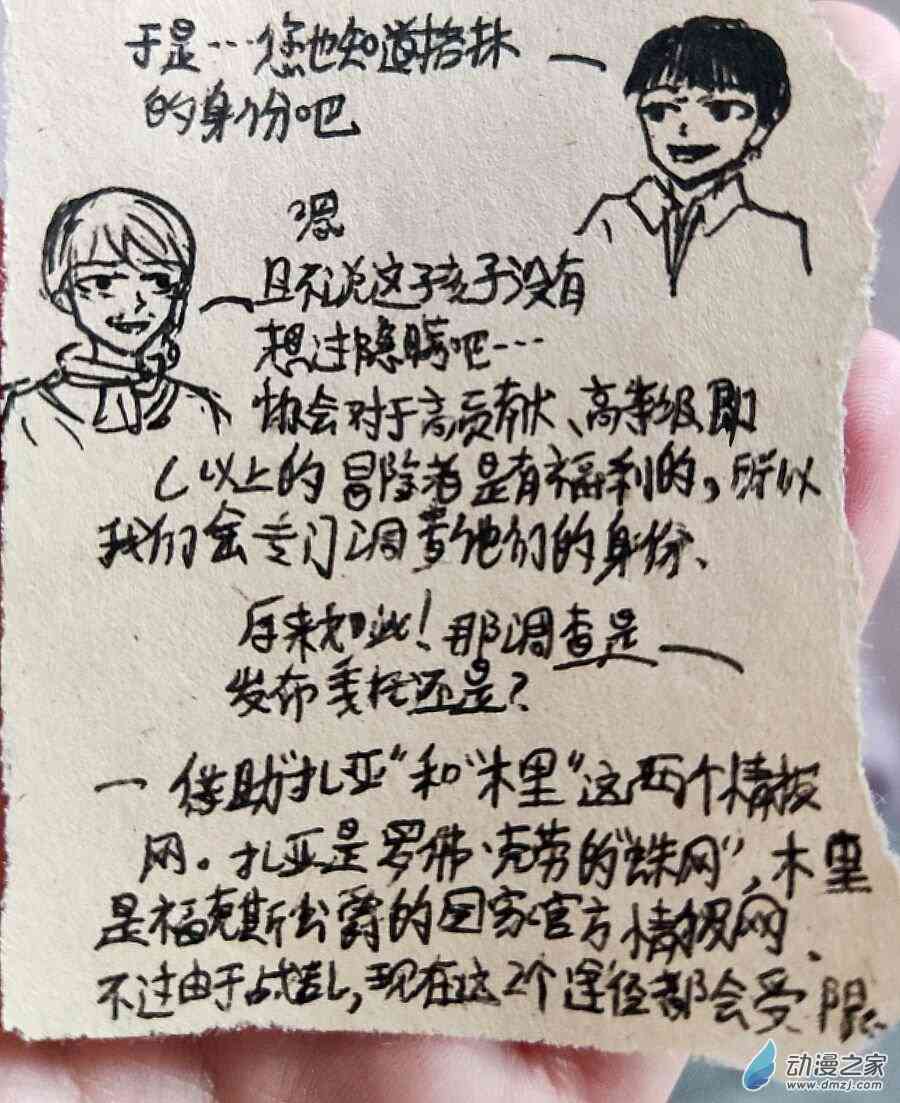 于是…您也知道捂抹
的身份吧
嗯
且不说这孩子没有
想过隐瞒吧…
协会对于高贡献、高等级即
C以上的冒险者是有福利的，所以
我们会专门调查他们的身份、
原来如此！那调查是
发布委托还是？
借助"扎亚"和"木里"这两个情报
网。扎亚是罗佛·克劳的"蛛网"，木里
是福克斯公爵的国家官方情报网、
不过由于战乱，现在这2个途径都会受限..
动漫之家
www.dmzj.com